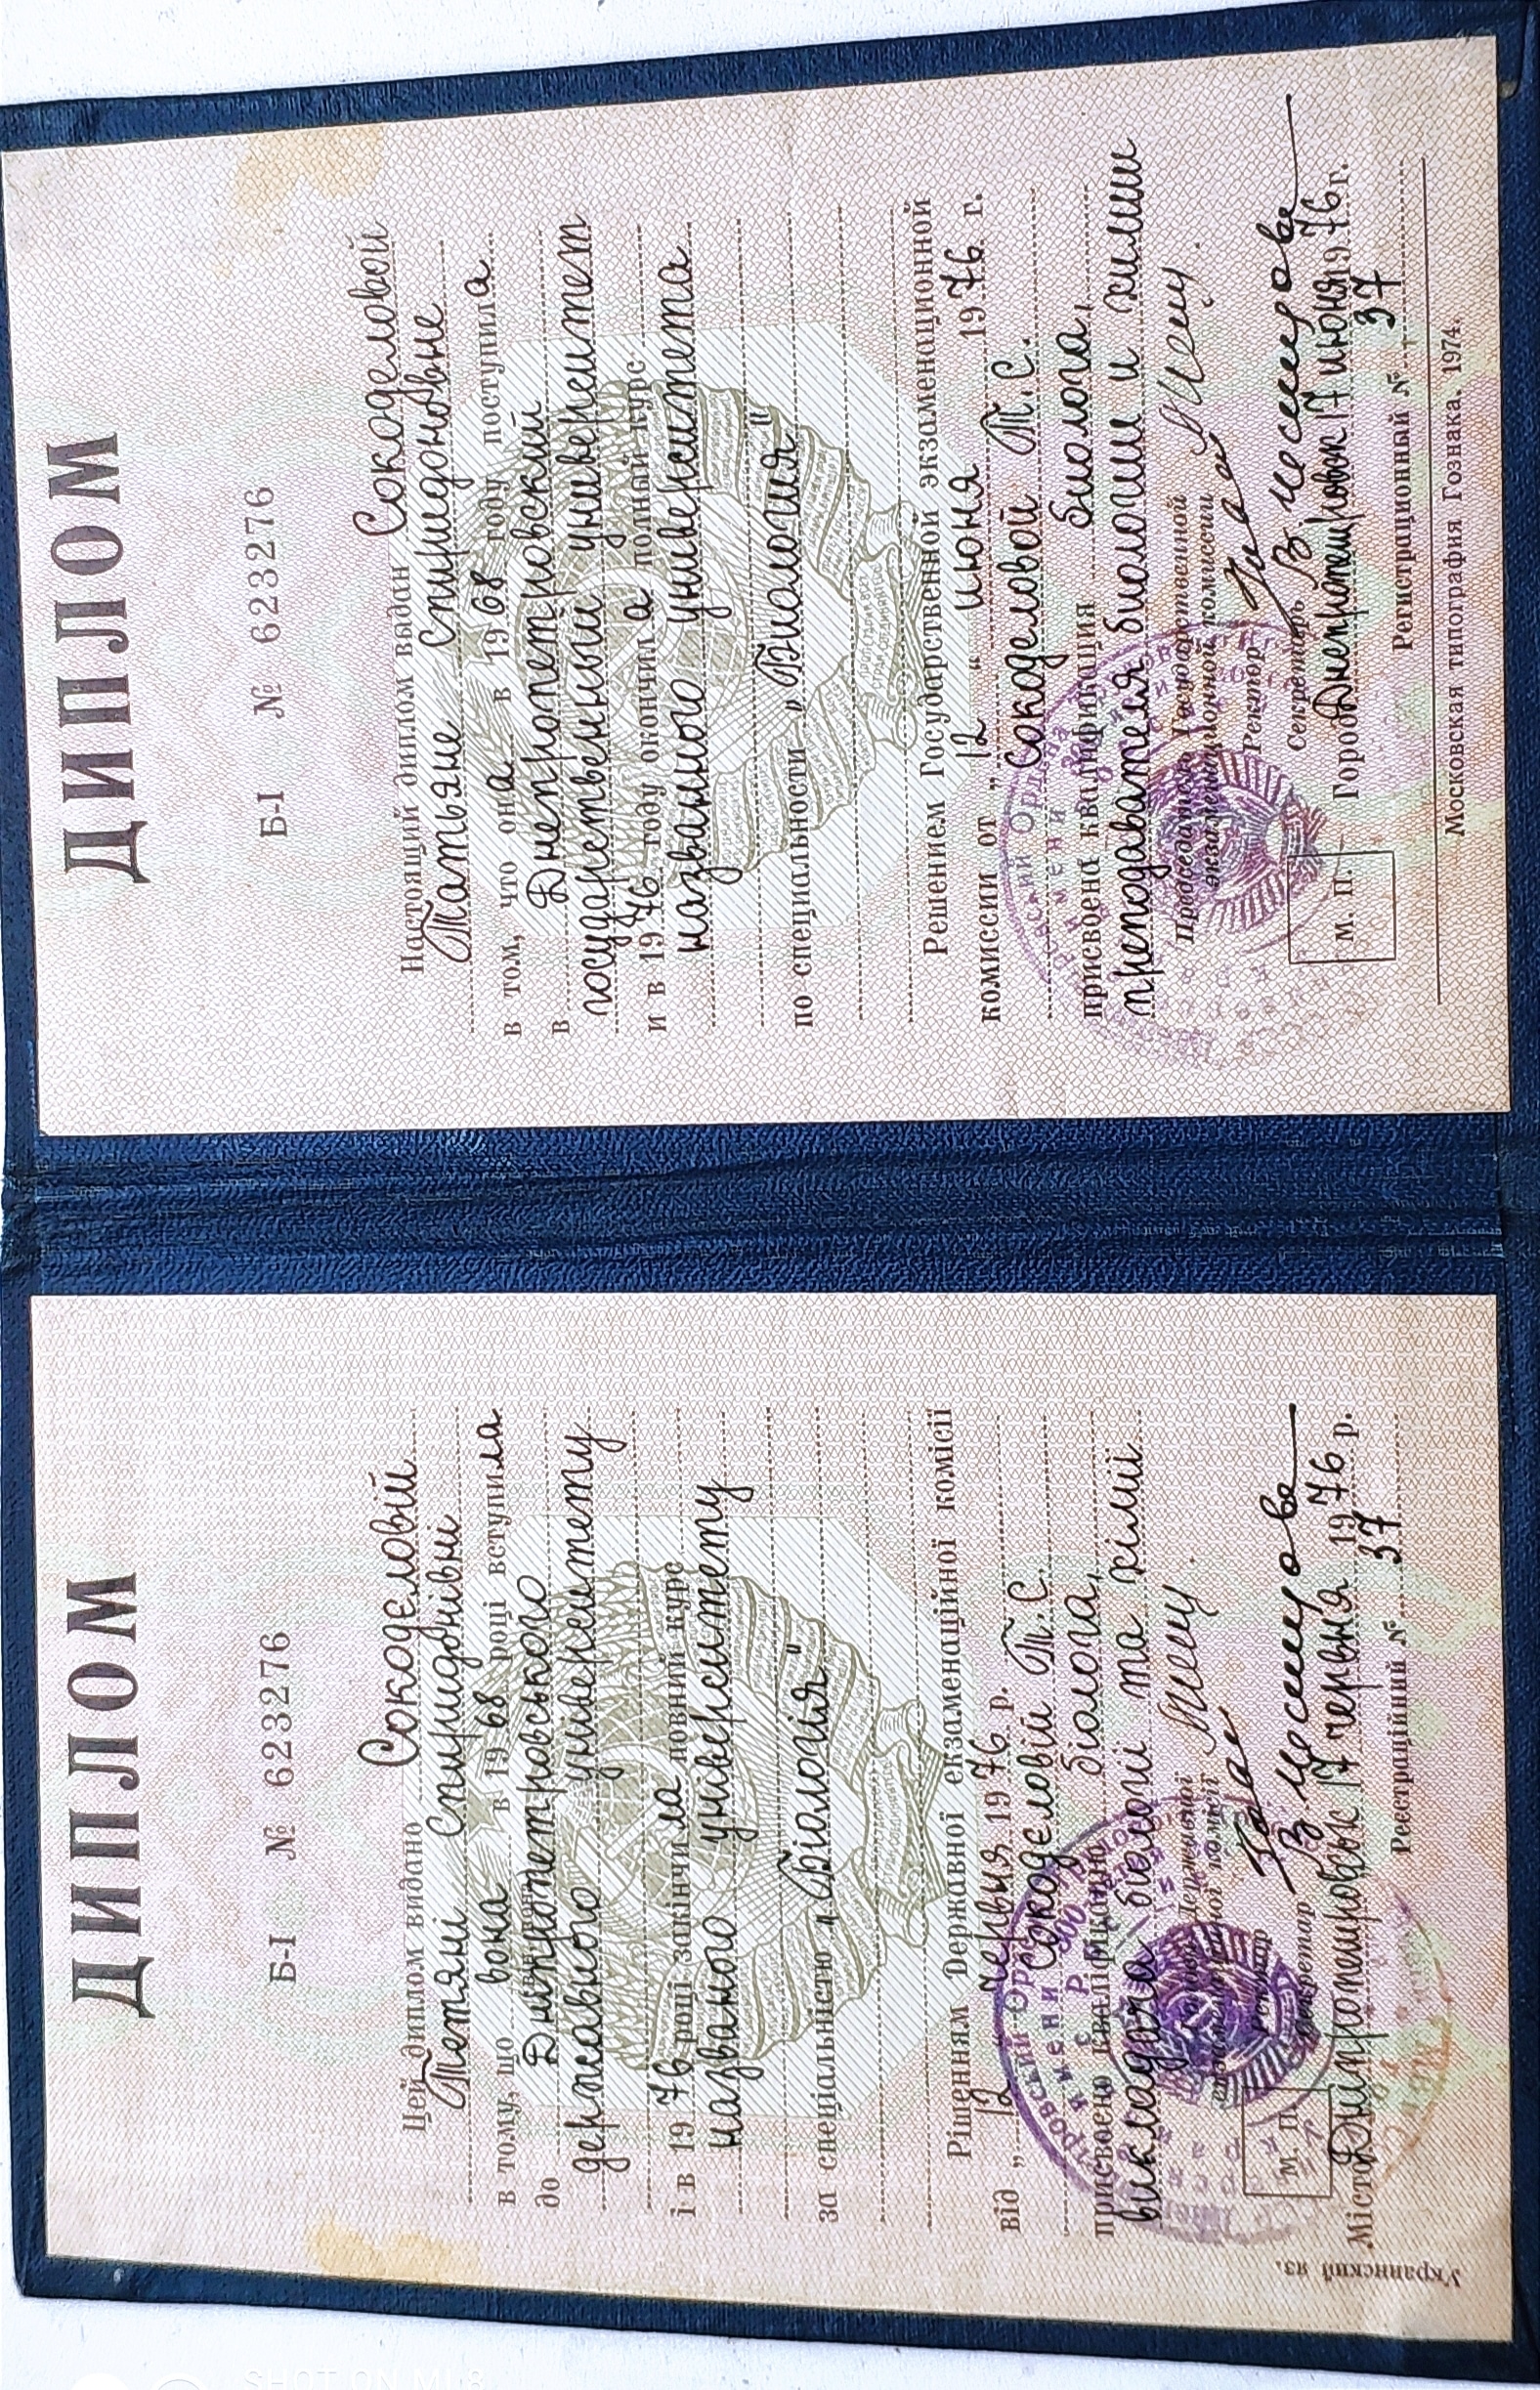 ДИПЛОМ
Б-I № 623276
Цей диплом видано Сокодєловій
Тетяні Спиридонівні
в тому, що вона в 1968 році вступила
до Дніпропетровського
державного університету
і в 1976 році закінчила повний курс
названого університету
за спеціальністю „Біологія"
Рішенням Державної екзаменаційної комісії
від „12" червня 1976 р.
Сокодєловій Т.С.
присвоєно кваліфікацію біолога,
викладача біології та хімії
Голова Державної
екзаменаційної комісії
Ректор
Секретар
М. П.
Місто Дніпропетровськ 17 червня 1976 р.
Реєстраційний № 37
Украинский яз.
ДИПЛОМ
Б-I № 623276
Настоящий диплом выдан Сокоделовой
Татьяне Спиридоновне
в том, что она в 1968 году поступила
в Днепропетровский
государственный университет
и в 1976 году окончила полный курс
названного университета
по специальности „Биология"
Решением Государственной экзаменационной
комиссии от „12" июня 1976 г.
Сокоделовой Т.С.
присвоена квалификация биолога,
преподавателя биологии и химии
Председатель Государственной
экзаменационной комиссии
Ректор
Секретарь
М. П.
Город Днепропетровск 17 июня 1976 г.
Регистрационный № 37
Московская типография Гознака. 1974.
SHOT ON MI 8